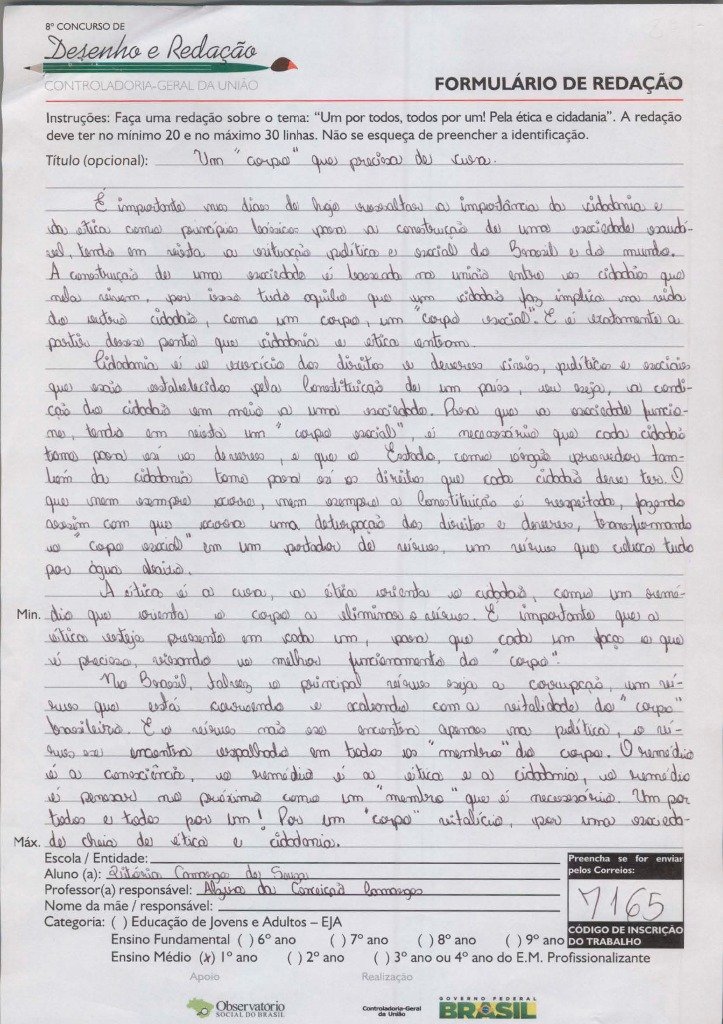 8º CONCURSO DE
Desenho e Redação
CONTROLADORIA-GERAL DA UNIÃO
FORMULÁRIO DE REDAÇÃO
Instruções: Faça uma redação sobre o tema: “Um por todos, todos por um! Pela ética e cidadania”. A redação
deve ter no mínimo 20 e no máximo 30 linhas. Não se esqueça de preencher a identificação.
Título (opcional): Um "corpo" que precisa de cura.
É importante nos dias de hoje ressaltar a importância da cidadania e
da ética como princípios básicos para a construção de uma sociedade saudá-
vel, tendo em vista a situação política e social do Brasil e do mundo.
A construção de uma sociedade é baseada na união entre os cidadãos que
nela vivem, por isso tudo aquilo que um cidadão faz implica na vida
do outro cidadão, como um corpo, um "corpo social". E é exatamente a
partir desse ponto que cidadania e ética entram.
Cidadania é o exercício dos direitos e deveres civis, políticos e sociais
que são estabelecidos pela Constituição de um país, ou seja, a condi-
ção do cidadão em meio a uma sociedade. Para que a sociedade funcio-
ne, tendo em vista um "corpo social", é necessário que cada cidadão
tome para si os deveres, e que o Estado, como órgão provedor tam-
bém da cidadania tome para si os direitos que cada cidadão deve ter. O
que nem sempre ocorre, nem sempre a Constituição é respeitada, fazendo
assim com que ocorra uma deturpação dos direitos e deveres, transformando
o "corpo social" em um portador de vírus, um vírus que coloca tudo
por água abaixo.
A ética é a cura, a ética orienta o cidadão, como um remé-
Min. dio que orienta o corpo a eliminar o vírus. É importante que a
ética esteja presente em cada um, para que cada um faça o que
é preciso, visando o melhor funcionamento do "corpo".
No Brasil, talvez o principal vírus seja a corrupção, um ví-
rus que está corroendo e acabando com a vitalidade do "corpo"
brasileiro. E o vírus não se encontra apenas na política, o ví-
rus se encontra espalhado em todos os "membros" do corpo. O remédio
é a consciência, o remédio é a ética e a cidadania, o remédio
é pensar no próximo como um "membro" que é necessário. Um por
todos e todos por um! Por um "corpo" vitalício, por uma socieda-
Máx. de cheia de ética e cidadania.
Escola / Entidade:
Aluno (a): Vitória Camargo de Souza
Professor(a) responsável: da Conceição Camargos
Nome da mãe / responsável:
Categoria: ( ) Educação de Jovens e Adultos – EJA
Ensino Fundamental ( ) 6º ano ( ) 7º ano ( ) 8º ano ( ) 9º ano
Ensino Médio (x) 1º ano ( ) 2º ano ( ) 3º ano ou 4º ano do E.M. Profissionalizante
Preencha se for enviar
pelos Correios:
7165
CÓDIGO DE INSCRIÇÃO
DO TRABALHO
Apoio
Realização
Observatório
SOCIAL DO BRASIL
Controladoria-Geral
da União
GOVERNO FEDERAL
BRASIL